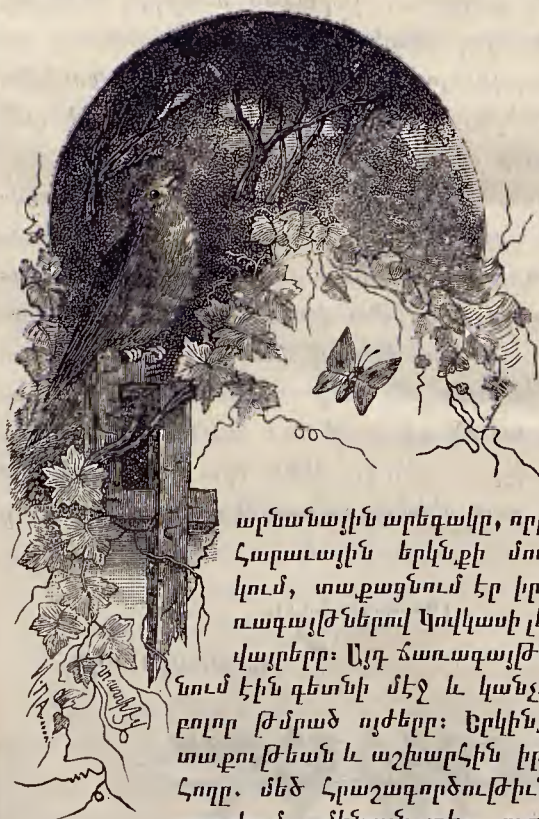 արնանային արեգակը, որը
Հարաւային երկնքի մու
կում, տաքացնում էր իր
ռագայթներով Կովկասի լե
վայրերը։ Այդ ճառագայթ
նում էին գետնի մէջ և կանչ
բոլոր թմրած ոյժերը։ Երկինք
տաքութեան և աշխարհին իր
Հողը. մեծ Հրաշագործութիւն